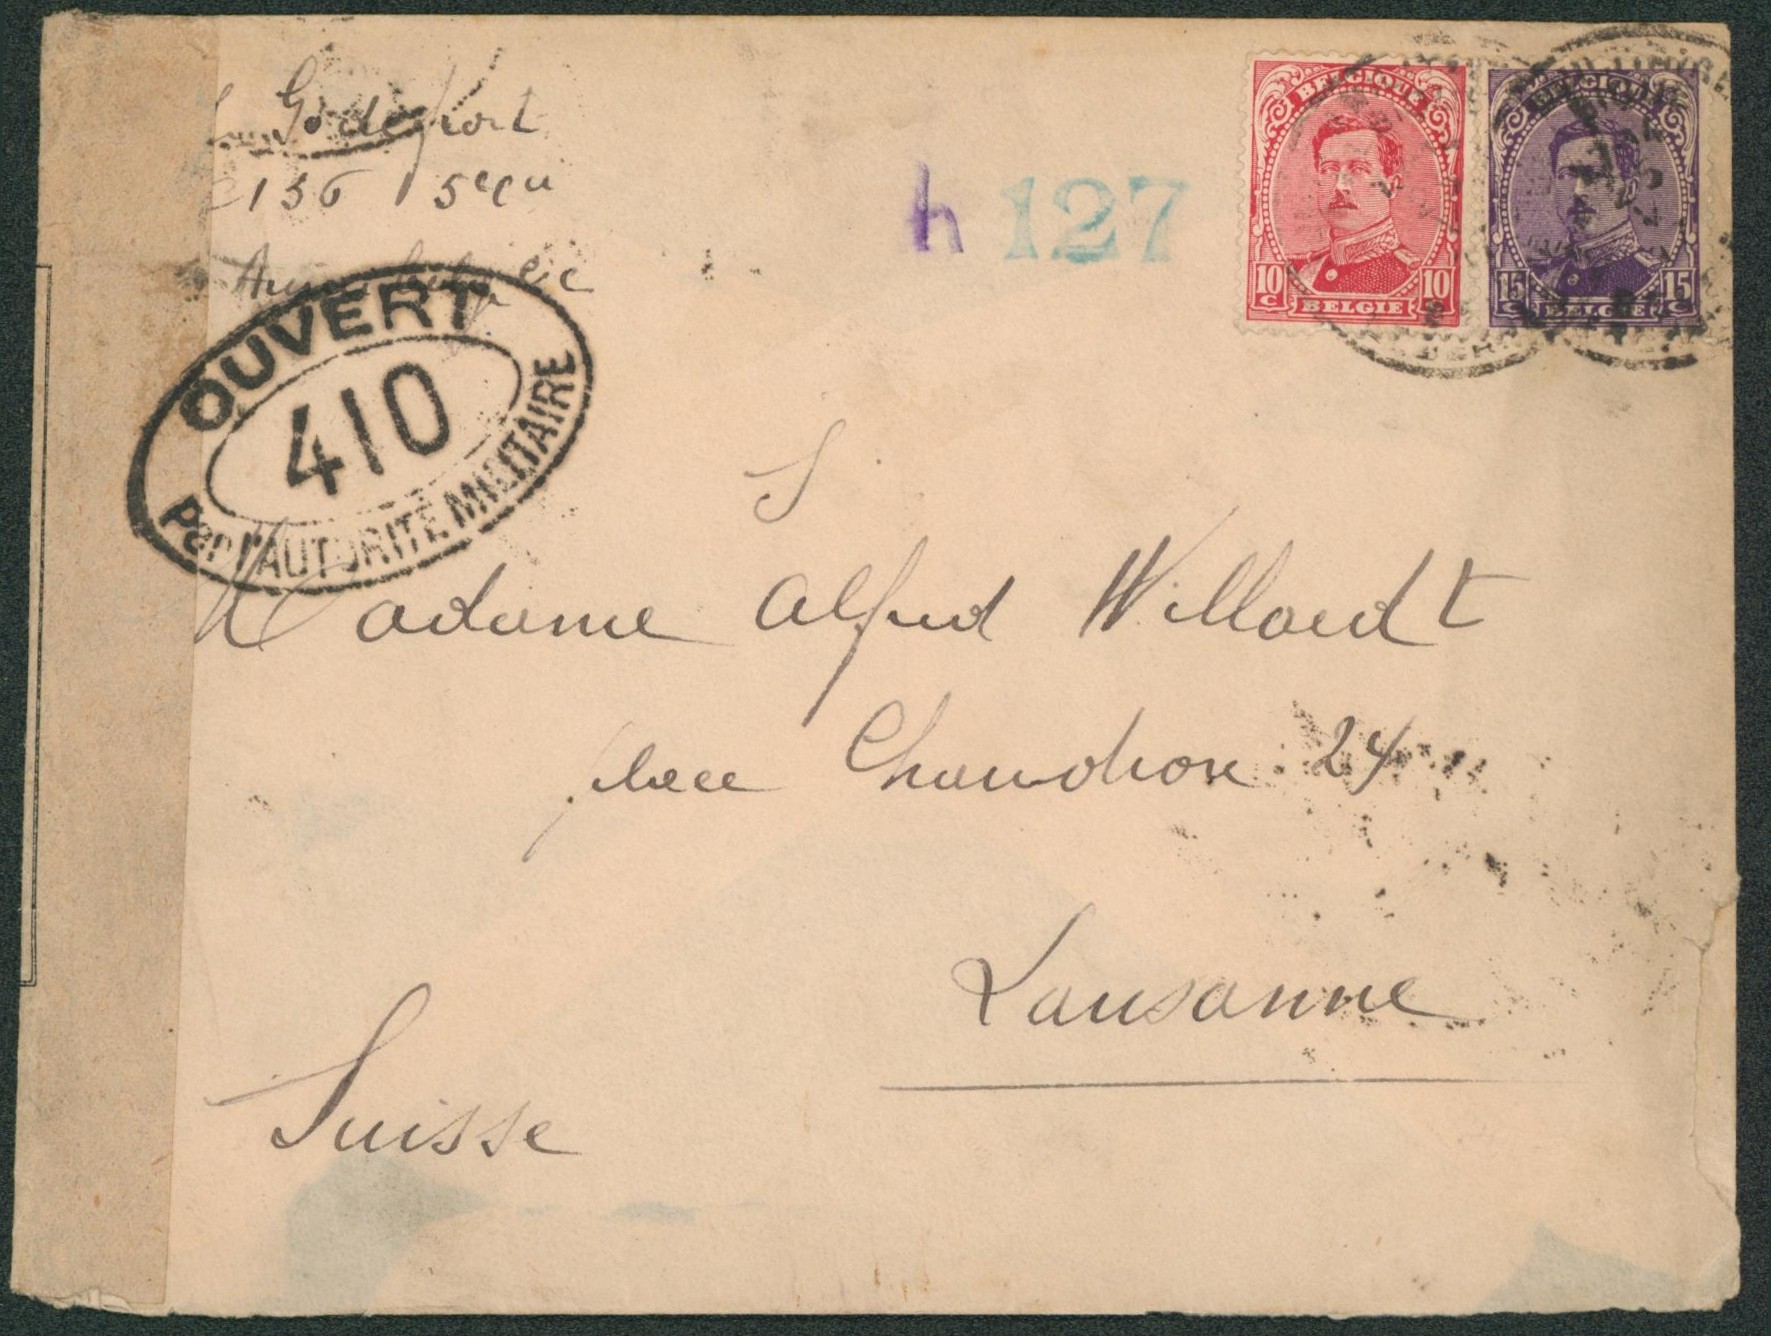 Godefort
C 136 5
OUVERT
410
Par l'AUTORITÉ MILITAIRE
h 127
BELGIQUE
10 c 10 c
BELGIE
BELGIQUE
15 c 15 c
BELGIE
Madame Alfred Willaert
place Chaudron 24
Lausanne
Suisse